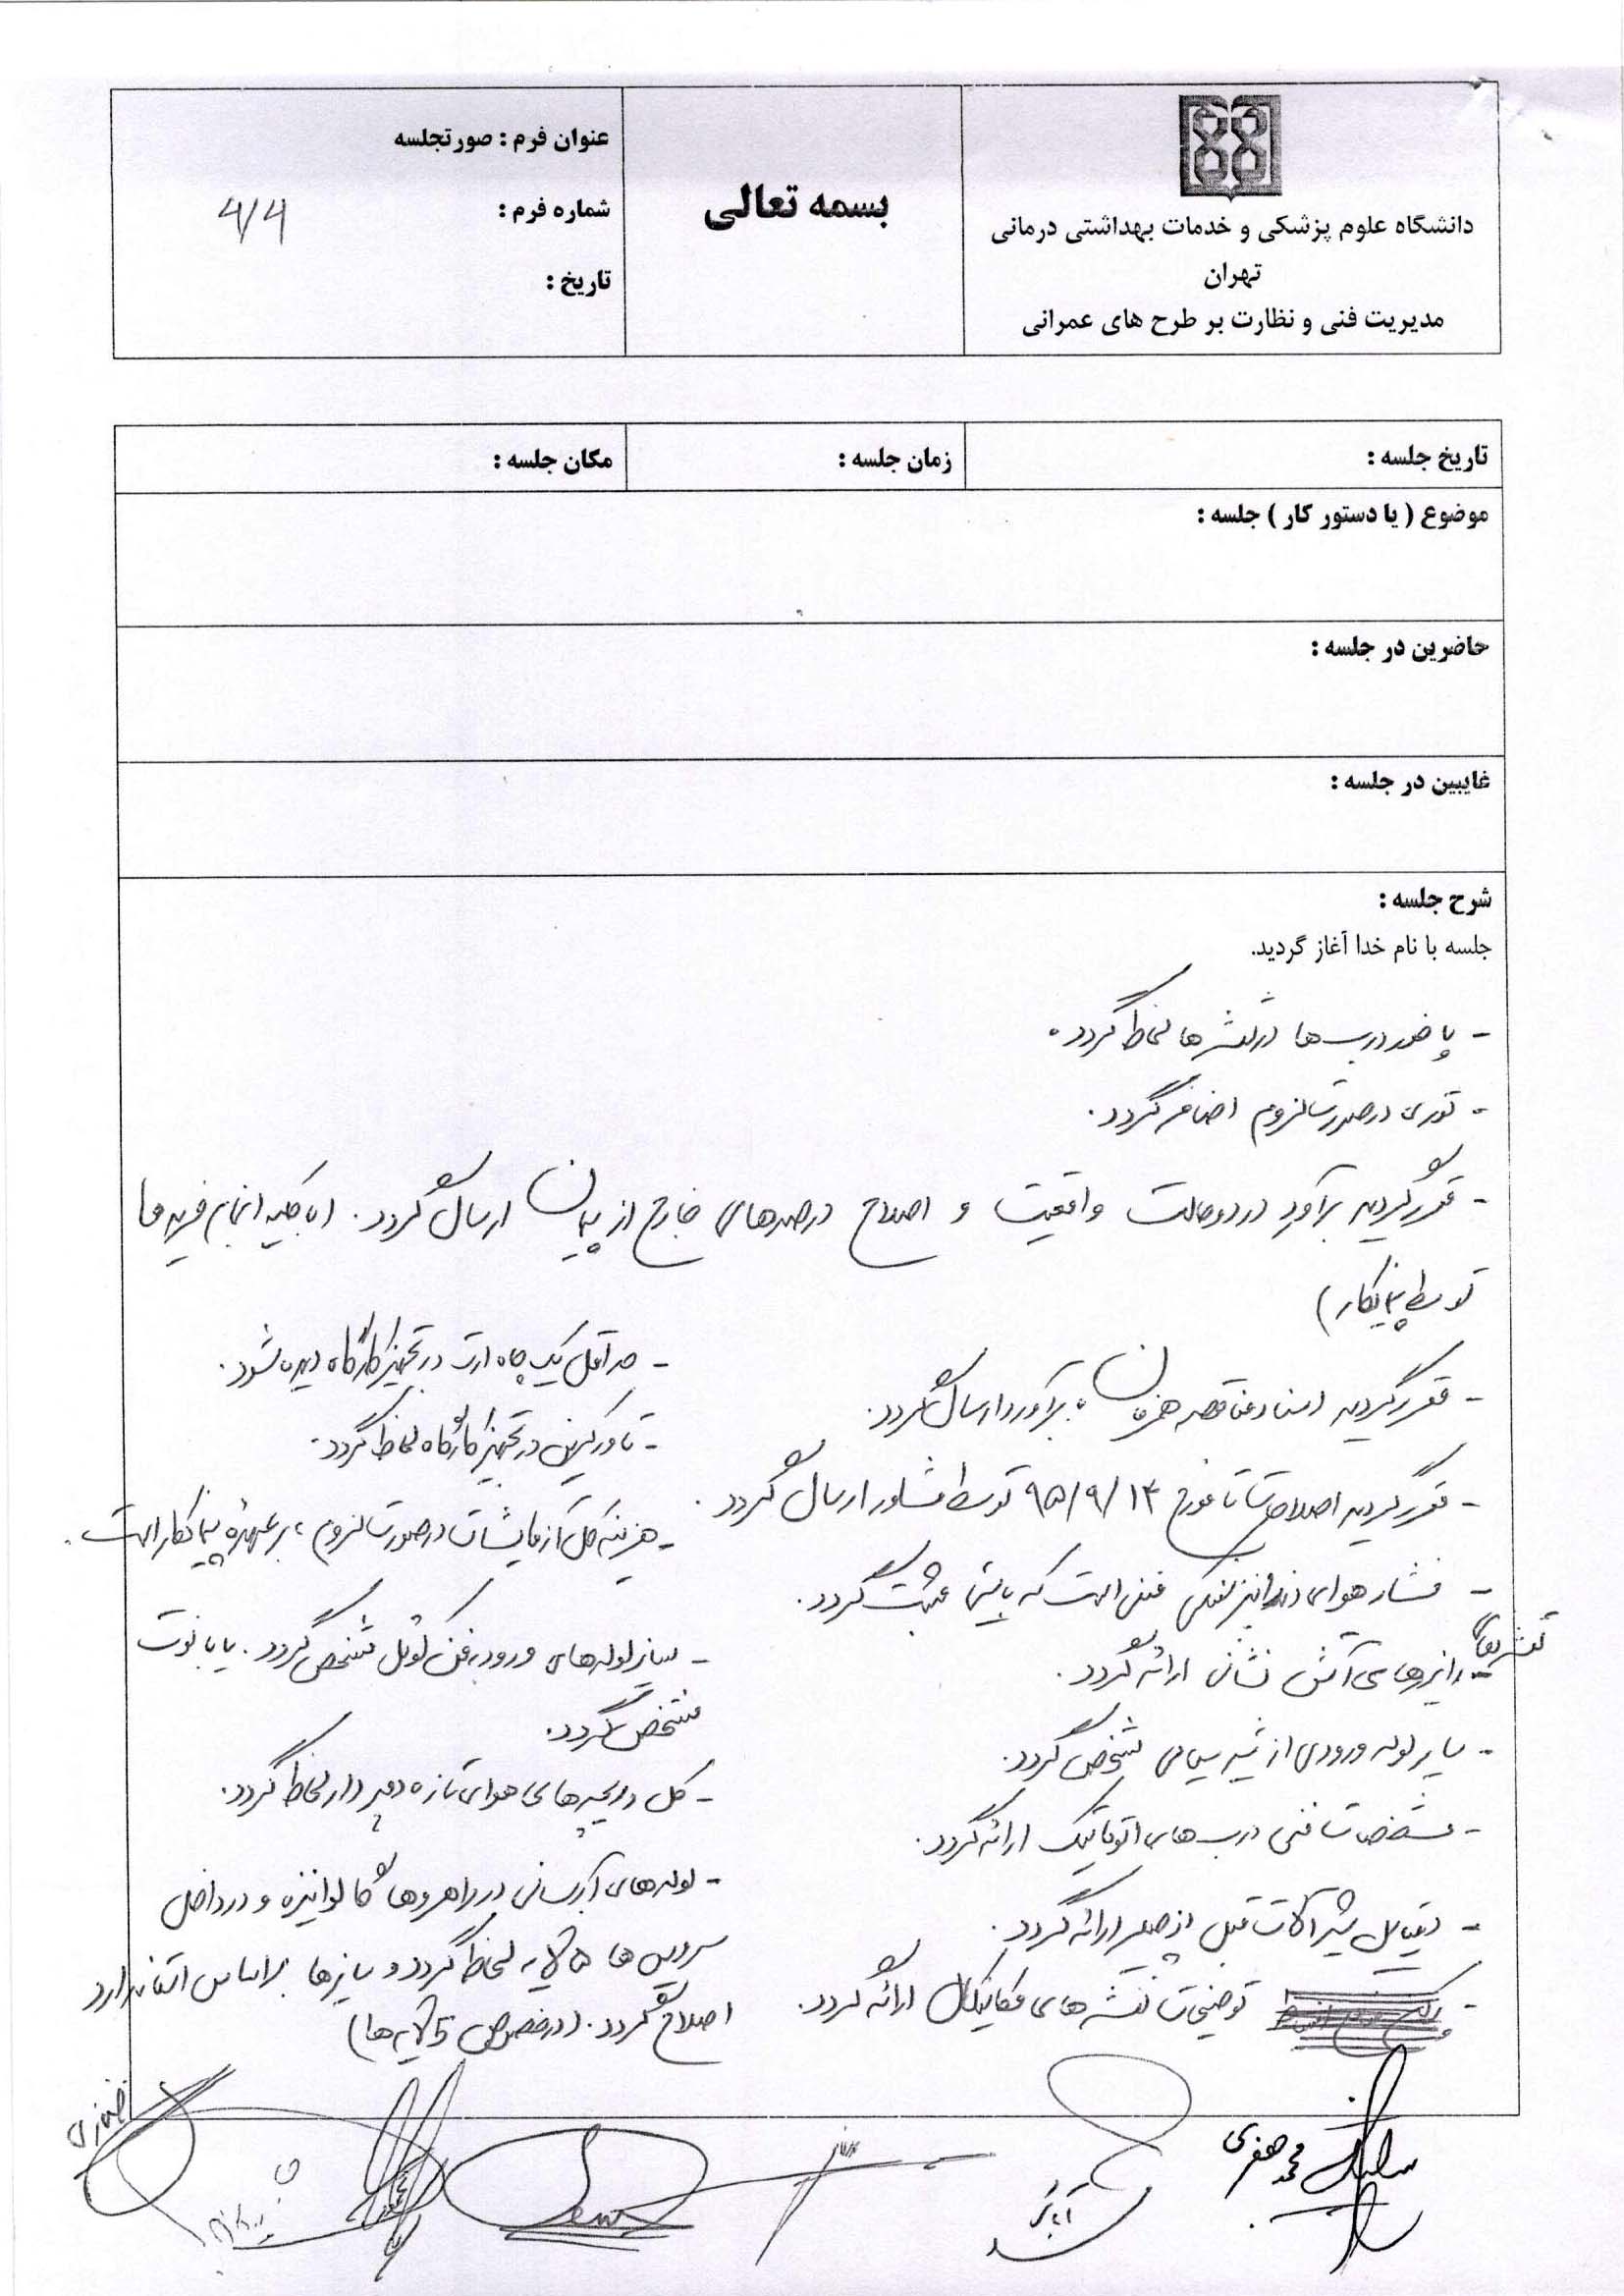 دانشگاه علوم پزشکی و خدمات بهداشتی درمانی
تهران
مدیریت فنی و نظارت بر طرح های عمرانی
بسمه تعالی
عنوان فرم : صورتجلسه
شماره فرم : ۴/۴
تاریخ :
تاریخ جلسه :
زمان جلسه :
مکان جلسه :
موضوع ( یا دستور کار ) جلسه :
حاضرین در جلسه :
غایبین در جلسه :
شرح جلسه :
جلسه با نام خدا آغاز گردید.
- پاخور دربها در نقشه ها لحاظ گردد.
- توری در صورت لزوم اضافه گردد.
- مقرر گردید برآورد در دو حالت واقعیت و اصلاح درصدهای خارج از پیمان ارسال گردد. (با انجام
توسط پیمانکار)
- مقرر گردید اسناد مناقصه همزمان با برآورد ارسال گردد.
- مقرر گردید اصلاحات تا مورخ ۹۵/۹/۱۴ توسط مشاور ارسال گردد.
- فشار هوای دندانپزشکی منفی است که بایستی مثبت گردد.
نقشه های رایزرهای آتش نشانی ارائه گردد.
- سایز لوله ورودی از شیر سیامی مشخص گردد.
- مشخصات فنی دربهای اتوماتیک ارائه گردد.
- دیتیل شیرآلات قبل از ارائه گردد.
- توضیحات نقشه های مکانیکال ارائه گردد.
- حداقل یک چاه ارت در تجهیز کارگاه دیده شود.
- تاورکرین در تجهیز کارگاه لحاظ گردد.
- هزینه کل آزمایشات در صورت لزوم، بر عهده پیمانکار است.
- سایز لوله های ورود به فن کوئل مشخص گردد. یا با نوت
مشخص گردد.
- کل دریچه های هوای تازه دمپر دار لحاظ گردد.
- لوله های آبرسانی در راهروها گالوانیزه و در داخل
سرویس ها ۵ لایه لحاظ گردد و سایزها بر اساس استاندارد
اصلاح گردد. (در خصوص ۵ لایه ها)
محمد جعفری